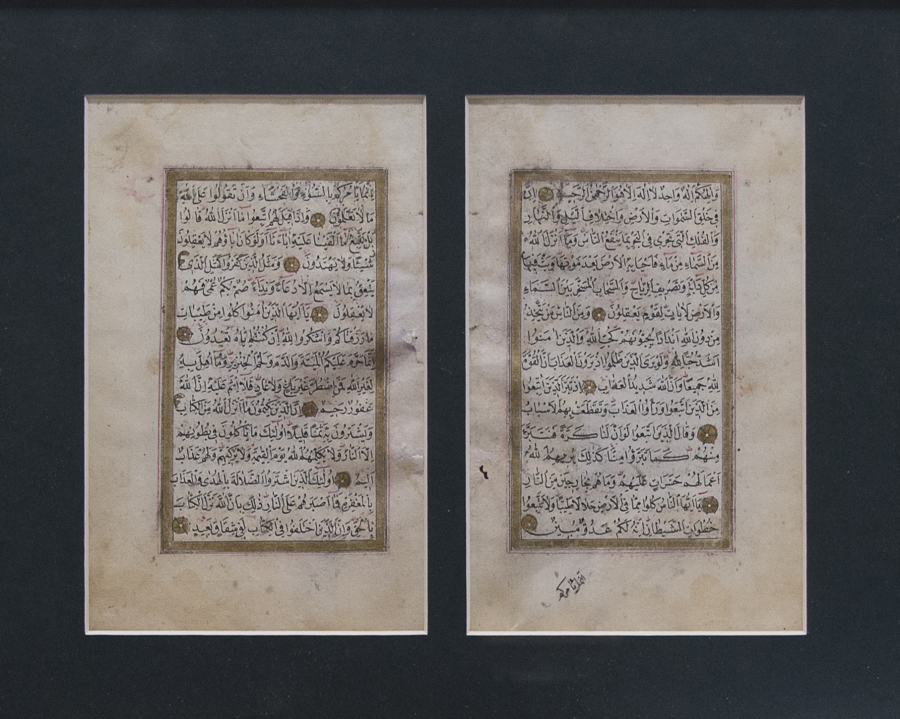 وَاِلٰهُكُمْ اِلٰهٌ وَاحِدٌ لَا اِلٰهَ اِلَّا هُوَ الرَّحْمٰنُ الرَّحِيمُ اِنَّ
فِي خَلْقِ السَّمٰوَاتِ وَالْاَرْضِ وَاخْتِلَافِ الَّيْلِ وَالنَّهَارِ
وَالْفُلْكِ الَّتِي تَجْرِي فِي الْبَحْرِ بِمَا يَنْفَعُ النَّاسَ وَمَا اَنْزَلَ اللّٰهُ
مِنَ السَّمَاءِ مِنْ مَاءٍ فَاَحْيَا بِهِ الْاَرْضَ بَعْدَ مَوْتِهَا وَبَثَّ فِيهَا
مِنْ كُلِّ دَابَّةٍ وَتَصْرِيفِ الرِّيَاحِ وَالسَّحَابِ الْمُسَخَّرِ بَيْنَ السَّمَاءِ
وَالْاَرْضِ لَاٰيَاتٍ لِقَوْمٍ يَعْقِلُونَ وَمِنَ النَّاسِ مَنْ يَتَّخِذُ
مِنْ دُونِ اللّٰهِ اَنْدَادًا يُحِبُّونَهُمْ كَحُبِّ اللّٰهِ وَالَّذِينَ اٰمَنُوا
اَشَدُّ حُبًّا لِلّٰهِ وَلَوْ يَرَى الَّذِينَ ظَلَمُوا اِذْ يَرَوْنَ الْعَذَابَ اَنَّ الْقُوَّةَ
لِلّٰهِ جَمِيعًا وَاَنَّ اللّٰهَ شَدِيدُ الْعَذَابِ اِذْ تَبَرَّاَ الَّذِينَ اتُّبِعُوا
مِنَ الَّذِينَ اتَّبَعُوا وَرَاَوُا الْعَذَابَ وَتَقَطَّعَتْ بِهِمُ الْاَسْبَابُ
وَقَالَ الَّذِينَ اتَّبَعُوا لَوْ اَنَّ لَنَا كَرَّةً فَنَتَبَرَّاَ
مِنْهُمْ كَمَا تَبَرَّؤُا مِنَّا كَذٰلِكَ يُرِيهِمُ اللّٰهُ
اَعْمَالَهُمْ حَسَرَاتٍ عَلَيْهِمْ وَمَا هُمْ بِخَارِجِينَ مِنَ النَّارِ
يَا اَيُّهَا النَّاسُ كُلُوا مِمَّا فِي الْاَرْضِ حَلَالًا طَيِّبًا وَلَا تَتَّبِعُوا
خُطُوَاتِ الشَّيْطَانِ اِنَّهُ لَكُمْ عَدُوٌّ مُبِينٌ
انما يامركم
اِنَّمَا يَاْمُرُكُمْ بِالسُّوءِ وَالْفَحْشَاءِ وَاَنْ تَقُولُوا عَلَى اللّٰهِ
مَا لَا تَعْلَمُونَ وَاِذَا قِيلَ لَهُمُ اتَّبِعُوا مَا اَنْزَلَ اللّٰهُ قَالُوا
بَلْ نَتَّبِعُ مَا اَلْفَيْنَا عَلَيْهِ اٰبَاءَنَا اَوَلَوْ كَانَ اٰبَاؤُهُمْ لَا يَعْقِلُونَ
شَيْئًا وَلَا يَهْتَدُونَ وَمَثَلُ الَّذِينَ كَفَرُوا كَمَثَلِ الَّذِي
يَنْعِقُ بِمَا لَا يَسْمَعُ اِلَّا دُعَاءً وَنِدَاءً صُمٌّ بُكْمٌ عُمْيٌ فَهُمْ
لَا يَعْقِلُونَ يَا اَيُّهَا الَّذِينَ اٰمَنُوا كُلُوا مِنْ طَيِّبَاتِ
مَا رَزَقْنَاكُمْ وَاشْكُرُوا لِلّٰهِ اِنْ كُنْتُمْ اِيَّاهُ تَعْبُدُونَ
اِنَّمَا حَرَّمَ عَلَيْكُمُ الْمَيْتَةَ وَالدَّمَ وَلَحْمَ الْخِنْزِيرِ وَمَا اُهِلَّ بِهِ
لِغَيْرِ اللّٰهِ فَمَنِ اضْطُرَّ غَيْرَ بَاغٍ وَلَا عَادٍ فَلَا اِثْمَ عَلَيْهِ اِنَّ اللّٰهَ
غَفُورٌ رَحِيمٌ اِنَّ الَّذِينَ يَكْتُمُونَ مَا اَنْزَلَ اللّٰهُ مِنَ الْكِتَابِ
وَيَشْتَرُونَ بِهِ ثَمَنًا قَلِيلًا اُولٰئِكَ مَا يَاْكُلُونَ فِي بُطُونِهِمْ
اِلَّا النَّارَ وَلَا يُكَلِّمُهُمُ اللّٰهُ يَوْمَ الْقِيٰمَةِ وَلَا يُزَكِّيهِمْ وَلَهُمْ عَذَابٌ
اَلِيمٌ اُولٰئِكَ الَّذِينَ اشْتَرَوُا الضَّلَالَةَ بِالْهُدٰى وَالْعَذَابَ
بِالْمَغْفِرَةِ فَمَا اَصْبَرَهُمْ عَلَى النَّارِ ذٰلِكَ بِاَنَّ اللّٰهَ نَزَّلَ الْكِتَابَ
بِالْحَقِّ وَاِنَّ الَّذِينَ اخْتَلَفُوا فِي الْكِتَابِ لَفِي شِقَاقٍ بَعِيدٍ